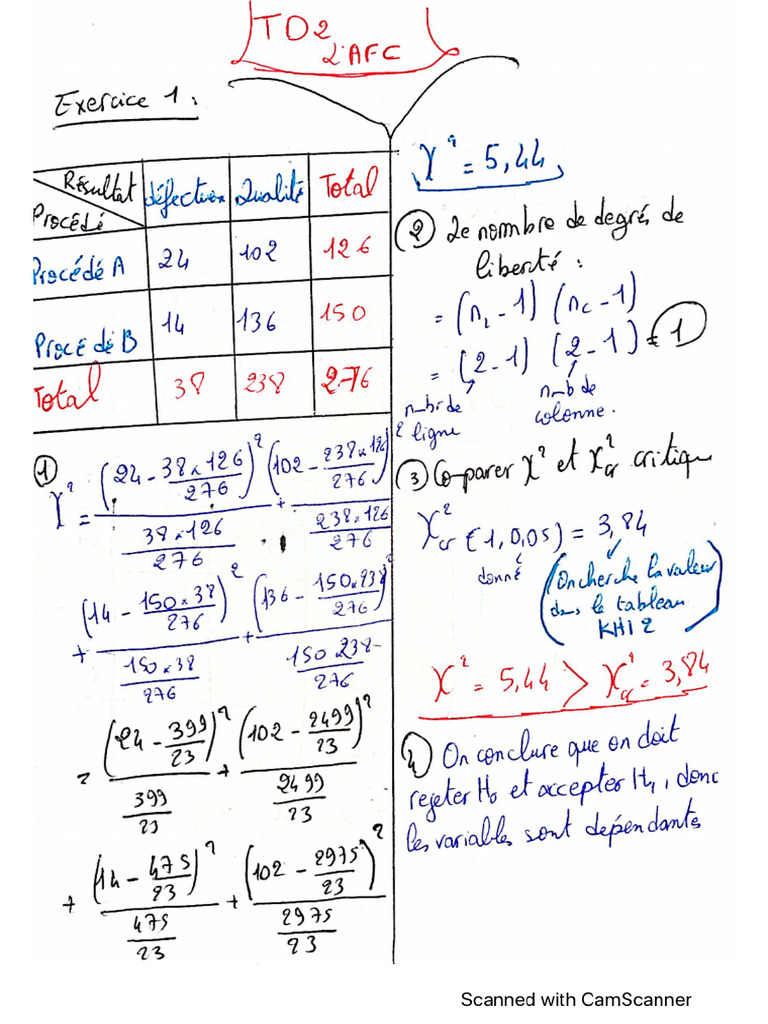 TD2
L'AFC
Exercice 1 :
Résultat
Procédé
défectueux Qualité Total
Procédé A 24 102 126
Procédé B 14 136 150
Total 38 238 276
① χ² = (24 - 38×126/276)² / (38×126/276) + (102 - 238×126/276)² / (238×126/276)
+ (14 - 150×38/276)² / (150×38/276) + (136 - 150×238/276)² / (150×238/276)
= (24 - 399/23)² / (399/23) + (102 - 2499/23)² / (2499/23)
+ (14 - 475/23)² / (475/23) + (102 - 2975/23)² / (2975/23)
χ² = 5,44
② Le nombre de degrés de
liberté :
= (nL - 1) (nc - 1)
= (2 - 1) (2 - 1) = 1
nbr de
ligne
nb de
colonne.
③ Comparer χ² et χ²cr critique
χ²cr (1, 0,05) = 3,84
donné
(on cherche la valeur
dans le tableau
KHI 2
χ² = 5,44 > χ²cr = 3,84
④ On conclure que on doit
rejeter H0 et accepter H1, donc
les variables sont dépendants
Scanned with CamScanner